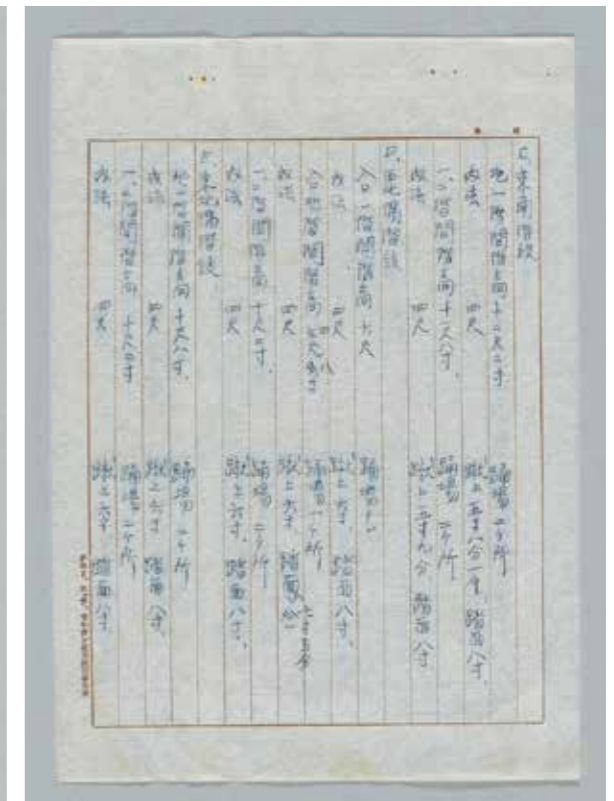 東南階段
地一階間階高 十二尺二寸
踊場 二ヶ所
内法 四尺
蹴上 五寸八分一厘、踏面 八寸、
一、二階間階高 十一尺八寸、
踊場 二ヶ所
内法 四尺
蹴上 五寸九分 踏面 八寸
西北隅階段
入口一階間階高 六尺
踊場ナシ
内法 四尺
蹴上 六寸、踏面 八寸、
入口地階間階高
踊場 一ヶ所
内法 四尺
蹴上 六寸 踏面
一、二階間階高 十尺二寸、
踊場 二ヶ所
内法 四尺
蹴上 六寸、踏面 八寸、
東北隅階段
地一階間階高 十尺八寸、
踊場 二ヶ所
内法 四尺
蹴上 六寸 踏面 八寸、
一、二階間階高 十尺二寸
踊場 二ヶ所
内法 四尺
蹴上 六寸 踏面 八寸